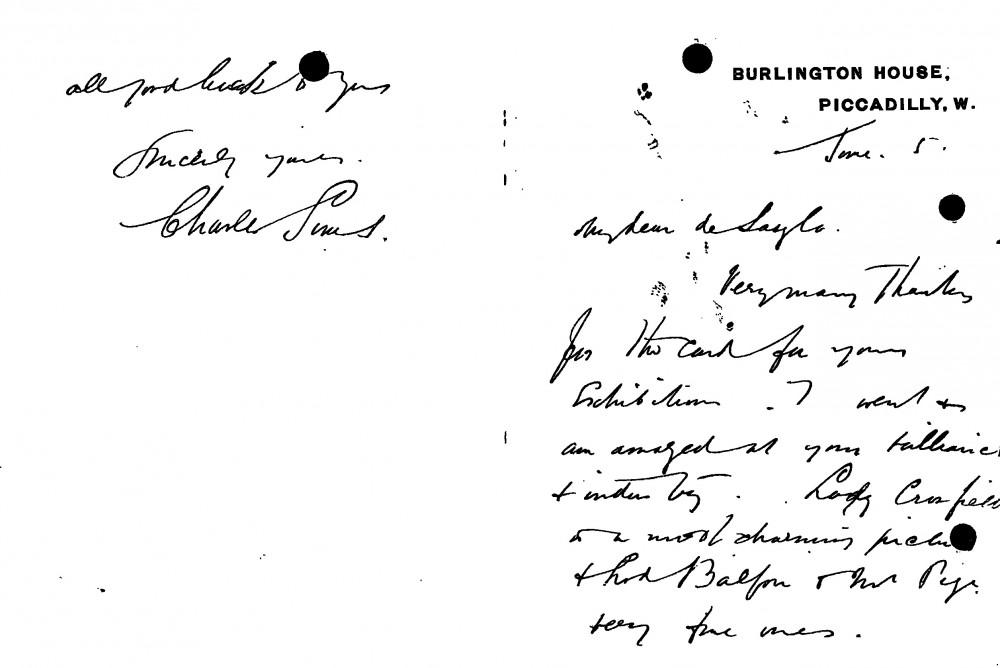 BURLINGTON HOUSE,
PICCADILLY, W.
June. 5.
My dear de Laszlo.
Very many Thanks
for the card for your
Exhibition. I went &
am amazed at your brilliance
& industry. Lady Crosfield
is a most charming picture
& Lord Balfour &
very fine ones.
all good luck to you
Sincerely yours.
Charles Sims.